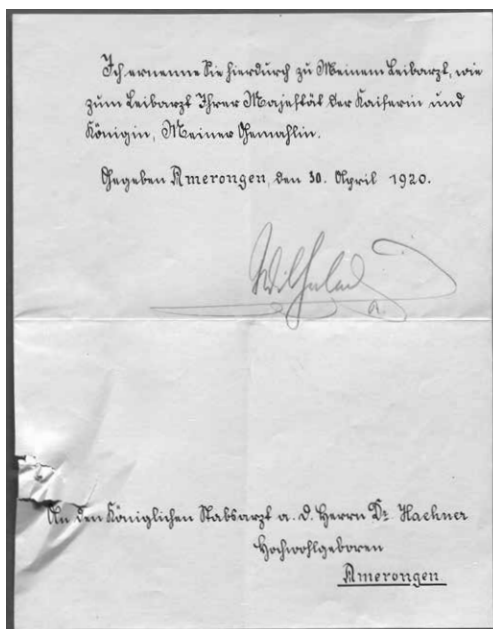 Ich ernenne Sie hierdurch zu Meinem Leibarzt, wie
zum Leibarzt Ihrer Majestät der Kaiserin und
Königin, Meiner Gemahlin.
Gegeben Amerongen, den 30. April 1920.
Wilhelm
An den Königlichen Stabsarzt a. D. Herrn Dr. Haehner
Hochwohlgeboren
Amerongen